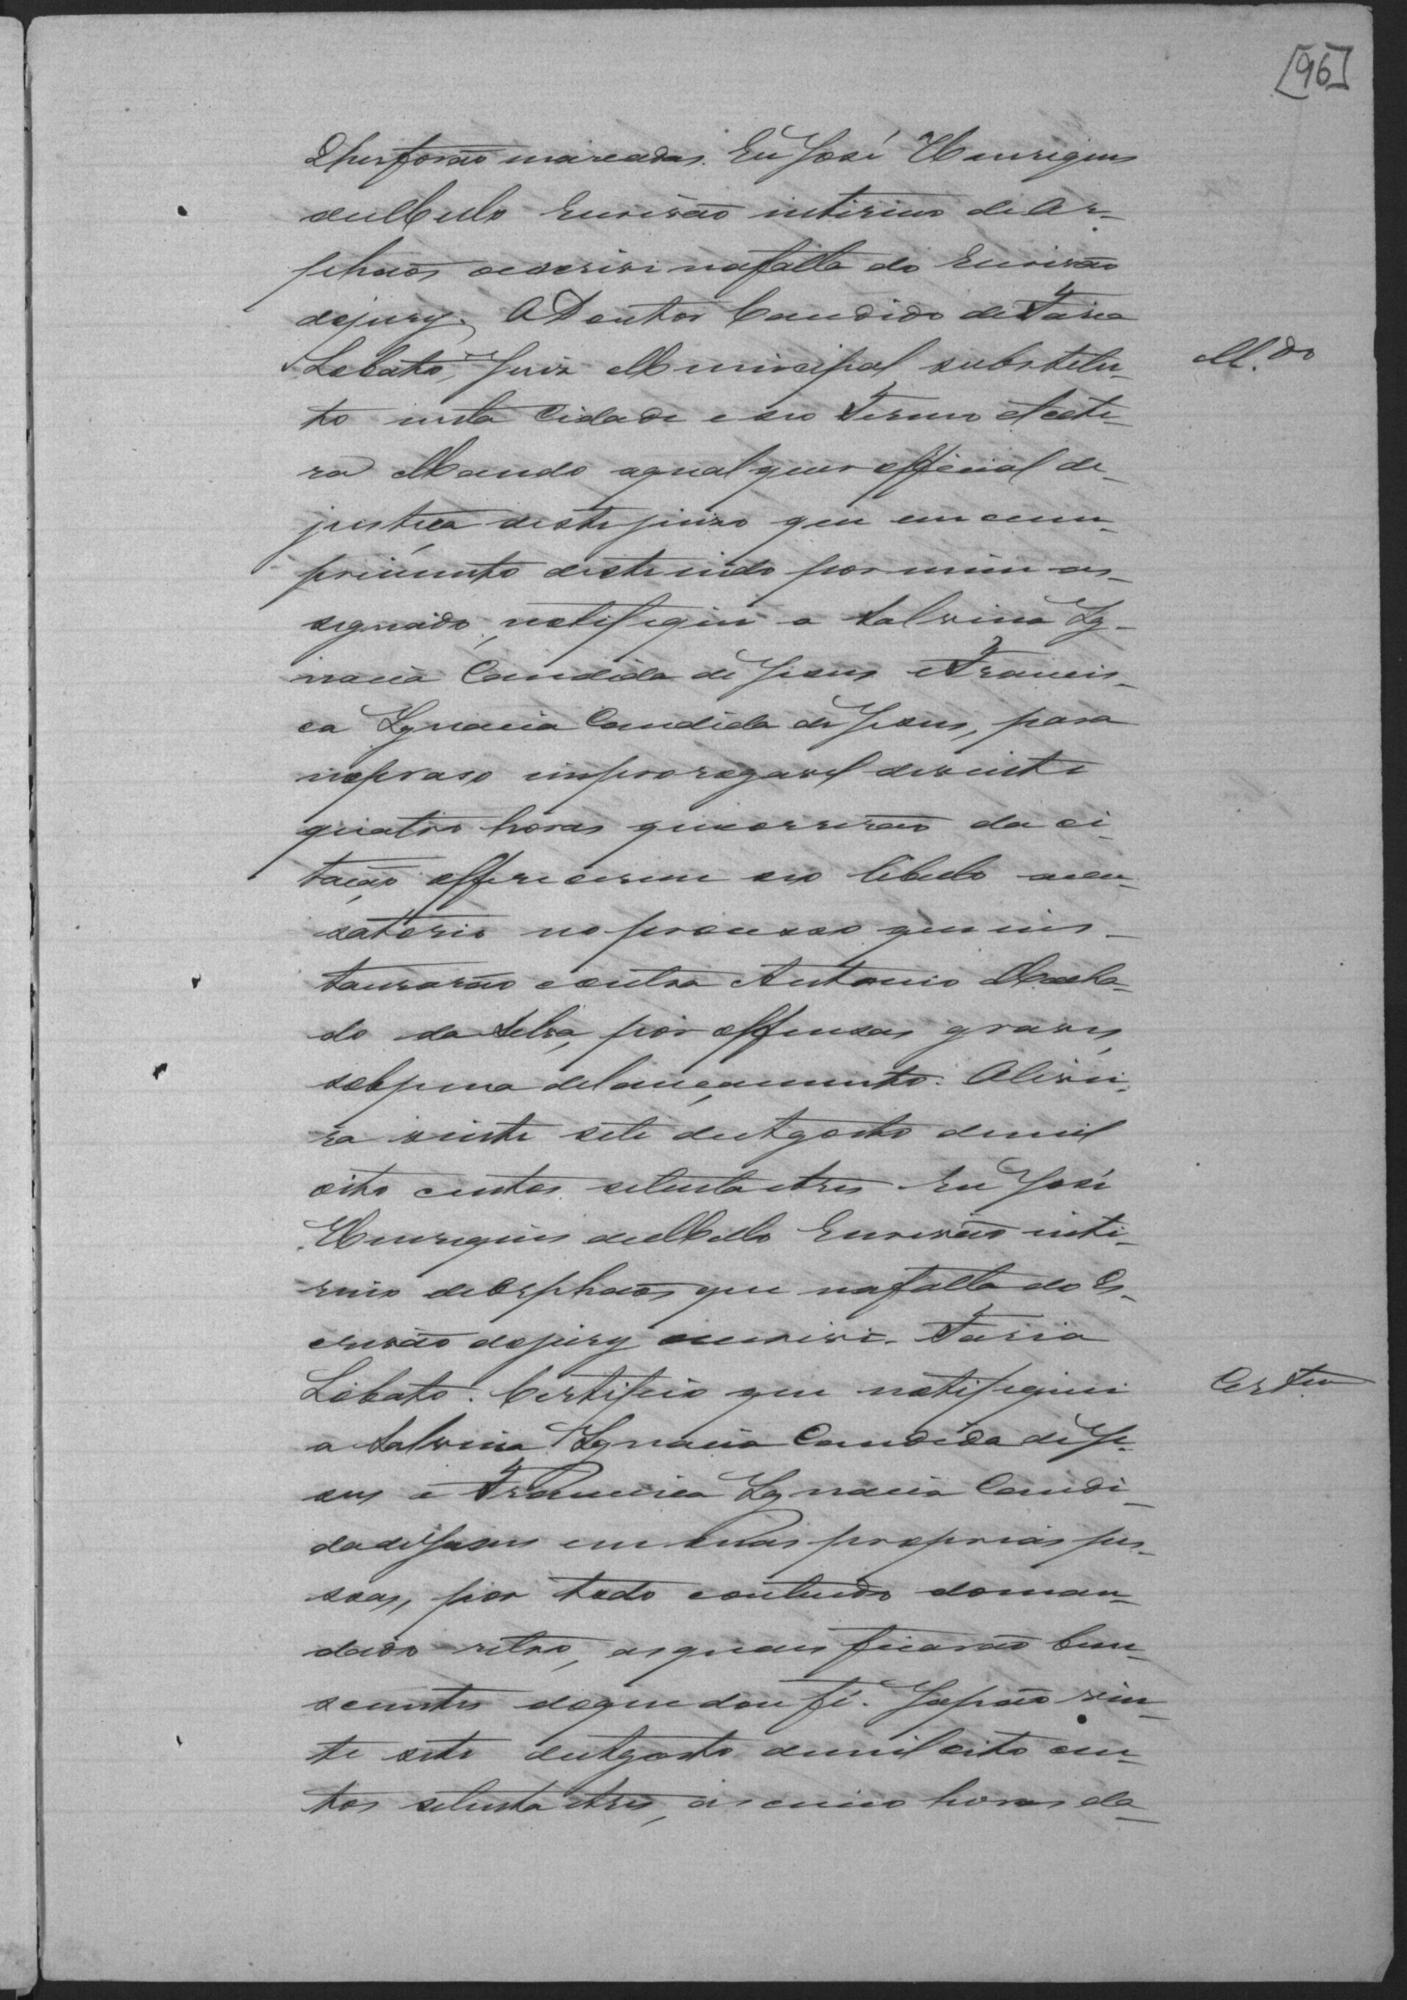 [96]
lhes forão marcadas. Eu José Henriques
de Mello Escrivão interino de Or-
phaõs o escrivi na falta do Escrivão
do jury. O Doutor Candido de Faria
Lobato, Juiz Municipal substitu-
M.do
to nesta Cidade e seo Termo etcete-
ra Mando a qual quer official de
justiça deste juizo que em cum-
primento deste indo por mim as-
signado, notifiquei a Salvina Ig-
nacia Candida de Jesus e Francis-
ca Ignacia Candida de Jesus, para
no praso improrogavel de vinte
quatro horas que correrão da ci-
tação offerecerem seo libello accu-
satorio no processo que ins-
taurarão contra Antonio Macha-
do da Silva, por offensas graves,
sob pena de lançamento. Olivei-
ra vinte sete de Agosto de mil
oito centos setenta e tres Eu José
Henriques de Mello Escrivão inte-
rino de Orphaõs que na falta do Es-
crivão do jury escrivi. Faria
Lobato. Certifico que notifiquei
Certm
a Salvina Ignacia Candida de Je-
sus e Francisca Ignacia Candi-
da de Jesus em suas proprias pes-
soas, por todo conteudo do man-
dado retro, as quaes ficarão bem
scientes do que dou fé. Japão vin-
te sete de Agosto de mil oito cen-
tos setenta e tres, as cinco horas da